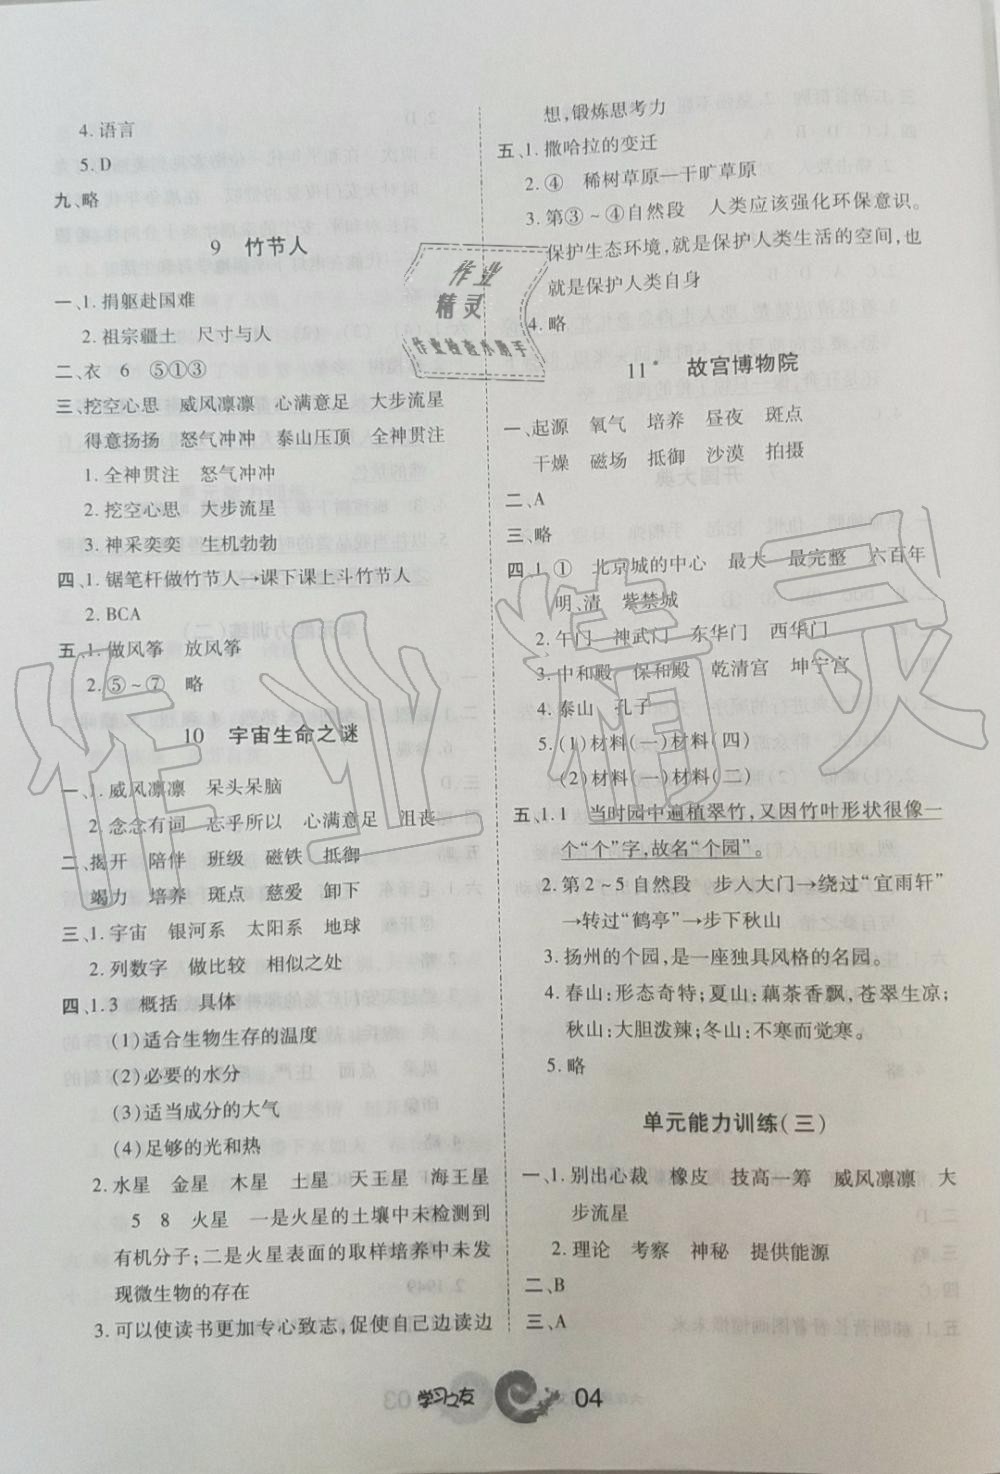 4. 语言
5. D
九、略
9 竹节人
一、1. 捐躯赴国难
2. 祖宗疆土 尺寸与人
二、衣 6 ⑤①③
三、挖空心思 威风凛凛 心满意足 大步流星
得意扬扬 怒气冲冲 泰山压顶 全神贯注
1. 全神贯注 怒气冲冲
2. 挖空心思 大步流星
3. 神采奕奕 生机勃勃
四、1. 锯笔杆做竹节人→课下课上斗竹节人
2. BCA
五、1. 做风筝 放风筝
2. ⑤~⑦ 略
10 宇宙生命之谜
一、1. 威风凛凛 呆头呆脑
2. 念念有词 忘乎所以 心满意足 沮丧
二、揭开 陪伴 班级 磁铁 抵御
竭力 培养 斑点 慈爱 卸下
三、1. 宇宙 银河系 太阳系 地球
2. 列数字 做比较 相似之处
四、1. 3 概括 具体
(1)适合生物生存的温度
(2)必要的水分
(3)适当成分的大气
(4)足够的光和热
2. 水星 金星 木星 土星 天王星 海王星
5 8 火星 一是火星的土壤中未检测到
有机分子;二是火星表面的取样培养中未发
现微生物的存在
3. 可以使读书更加专心致志,促使自己边读边
想,锻炼思考力
五、1. 撒哈拉的变迁
2. ④ 稀树草原—干旷草原
3. 第③~④自然段 人类应该强化环保意识。
保护生态环境,就是保护人类生活的空间,也
就是保护人类自身
4. 略
11* 故宫博物院
一、起源 氧气 培养 昼夜 斑点
干燥 磁场 抵御 沙漠 拍摄
二、A
三、略
四、1. ① 北京城的中心 最大 最完整 六百年
明、清 紫禁城
2. 午门 神武门 东华门 西华门
3. 中和殿 保和殿 乾清宫 坤宁宫
4. 泰山 孔子
5. (1)材料(一)材料(四)
(2)材料(一)材料(二)
五、1. 1 当时园中遍植翠竹,又因竹叶形状很像一
个“个”字,故名“个园”。
2. 第2~5自然段 步入大门→绕过“宜雨轩”
→转过“鹤亭”→步下秋山
3. 扬州的个园,是一座独具风格的名园。
4. 春山:形态奇特;夏山:藕茶香飘,苍翠生凉;
秋山:大胆泼辣;冬山:不寒而觉寒。
5. 略
单元能力训练(三)
一、1. 别出心裁 橡皮 技高一筹 威风凛凛 大
步流星
2. 理论 考察 神秘 提供能源
二、B
三、A
学习之友 04
作业
精灵
作业检查小助手
作业精灵